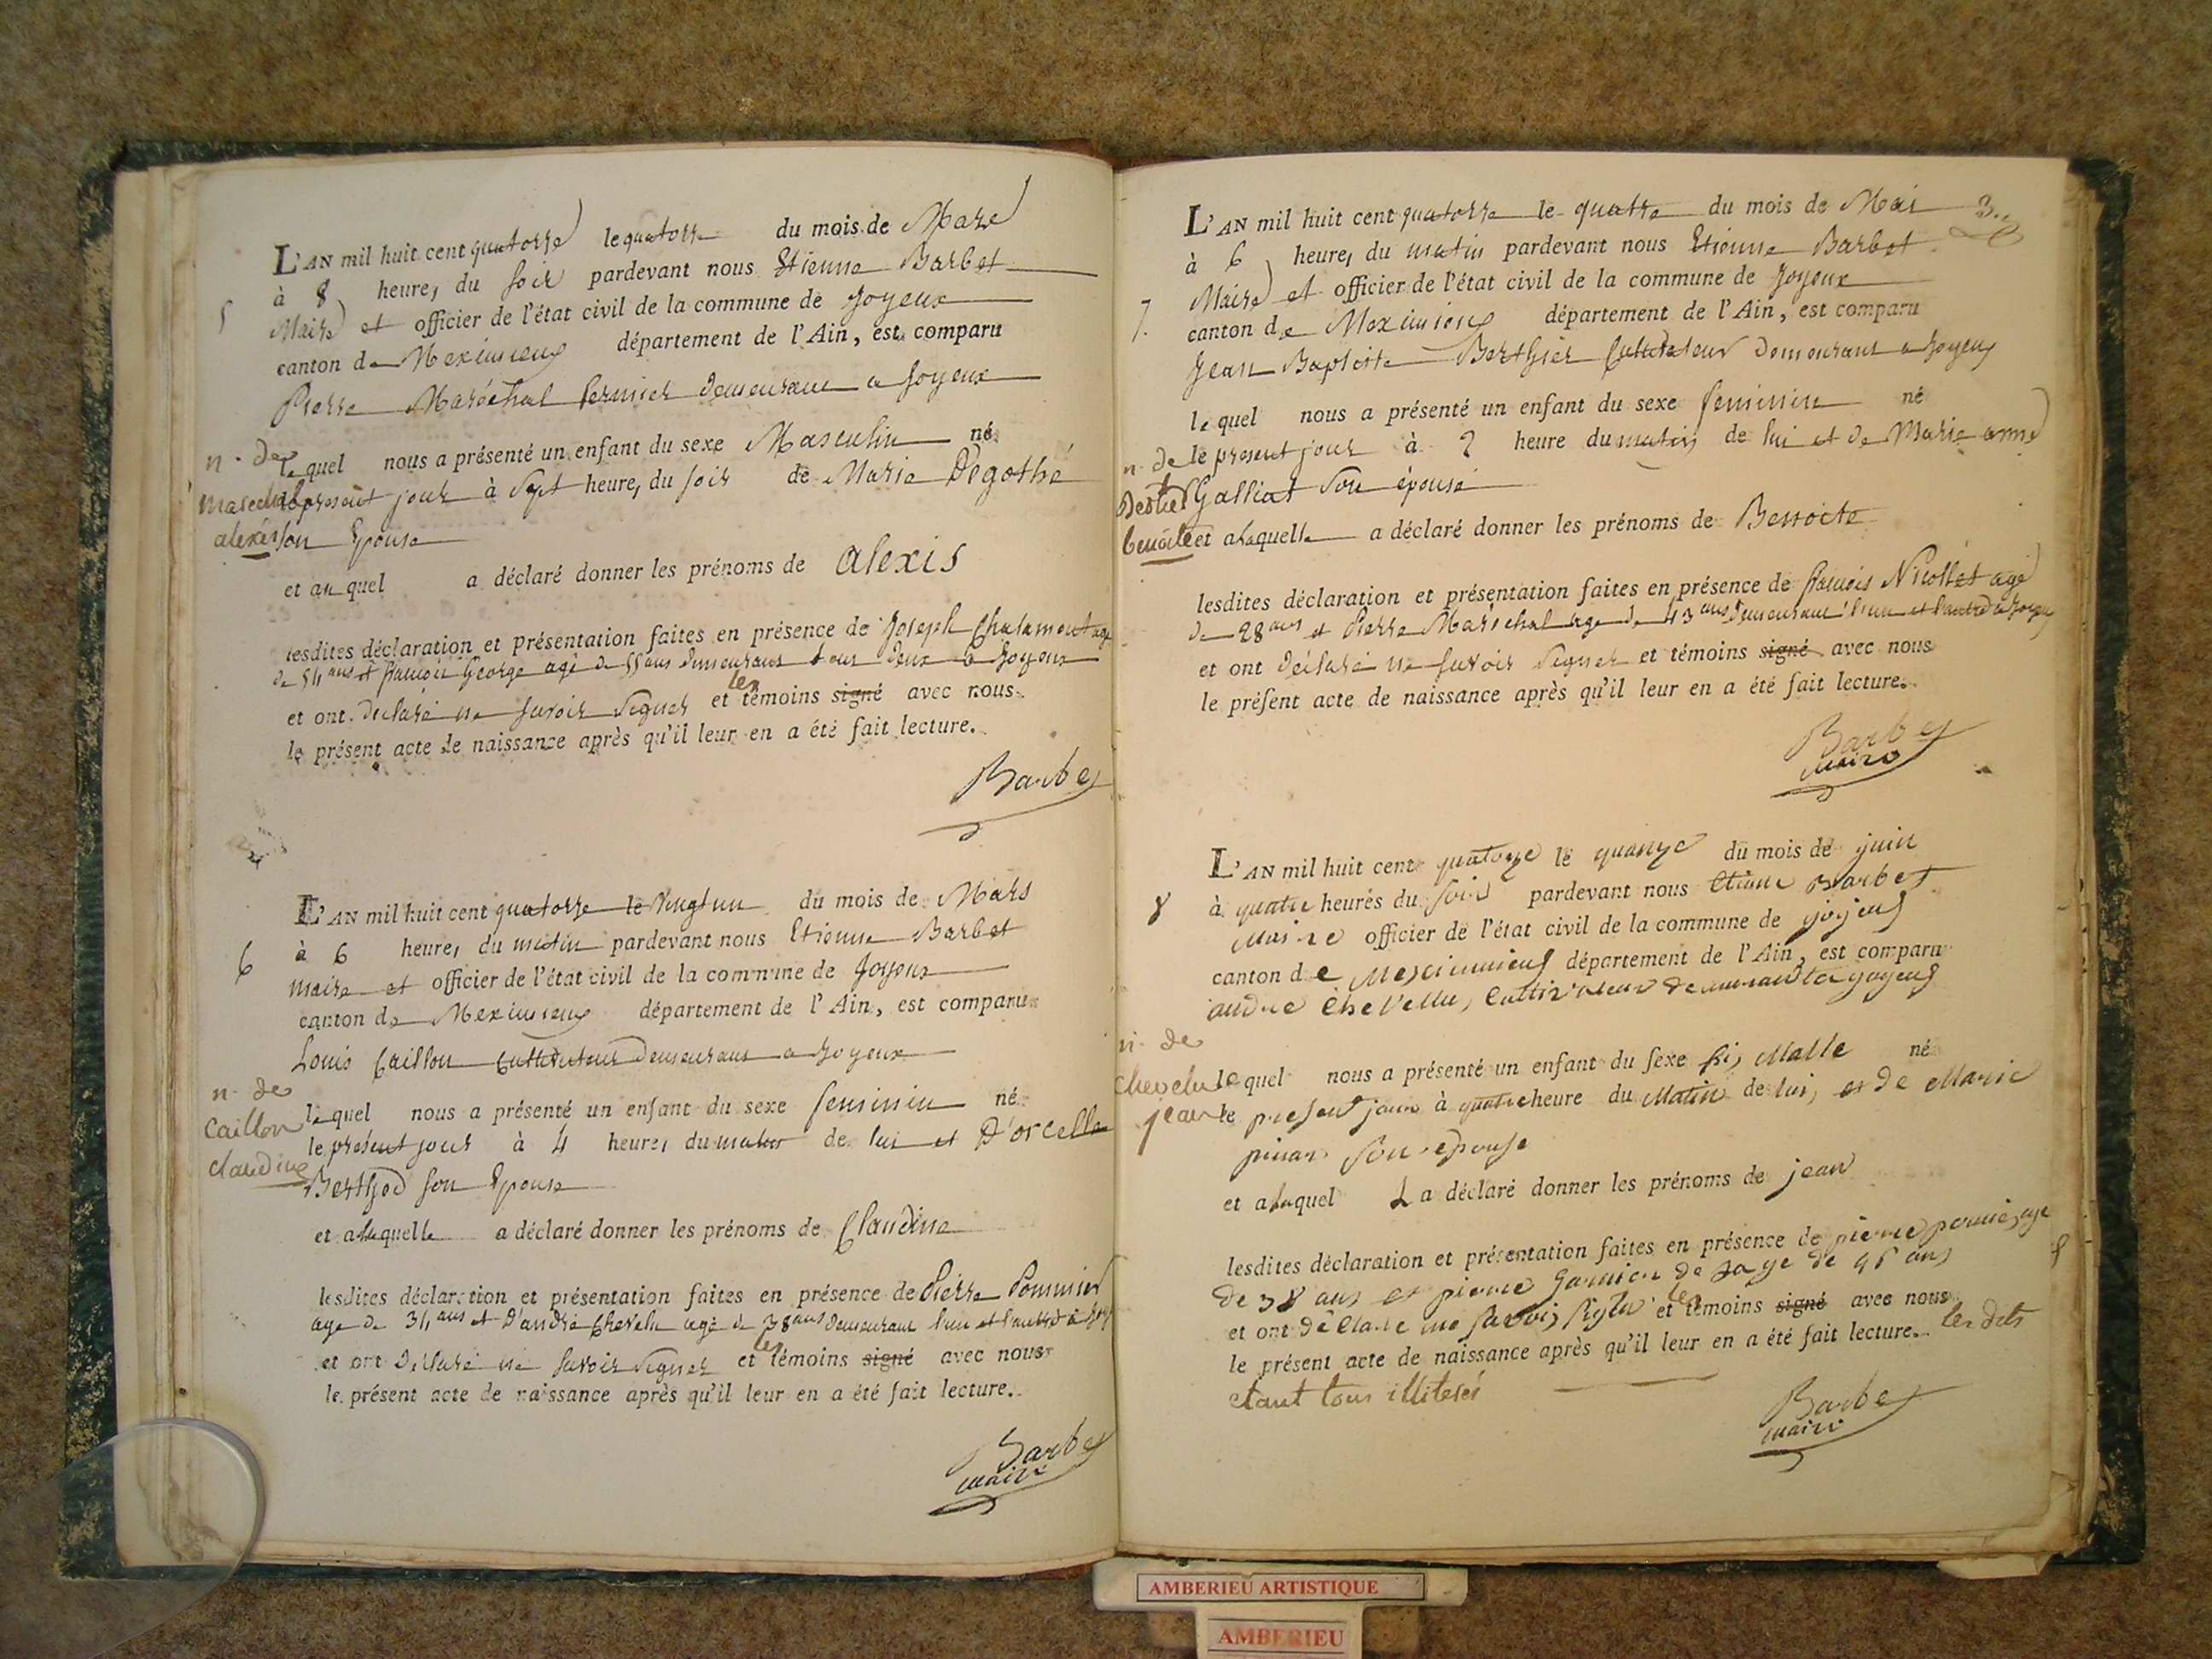 L'AN mil huit cent quatorze le quatorze du mois de Mars
à 8 heures du soir pardevant nous Etienne Barbet
5
Maire et officier de l'état civil de la commune de Joyeux
canton de Meximieux département de l'Ain, est comparu
Pierre Maréchal fermier demeurant a Joyeux
n. de
lequel nous a présenté un enfant du sexe Masculin né
marechal
le present jour à sept heure, du soir de Marie Degothé
alexis
son Epouse
et au quel a déclaré donner les prénoms de Alexis
lesdites déclaration et présentation faites en présence de Joseph Chalamont agé
de 54 ans et françois George agé de 55 ans demeurant tous deux a Joyeux
et ont déclaré ne savoir signer et les témoins signé avec nous
le présent acte de naissance après qu'il leur en a été fait lecture.
Barbet
L'AN mil huit cent quatorze le vingt un du mois de Mars
6
à 6 heures du matin pardevant nous Etienne Barbet
maire et officier de l'état civil de la commune de Joyeux
canton de Meximieux département de l'Ain, est comparu
Louis Caillon cultivateur demeurant a Joyeux
n. de
Caillon
lequel nous a présenté un enfant du sexe feminin né
claudine
le présent jour à 4 heures du matin de lui et D'orcelle
Berthod son Epouse
et a laquelle a déclaré donner les prénoms de Claudine
lesdites déclaration et présentation faites en présence de Pierre Pommier
age de 34 ans et D'andré Chevelu agé de 38 ans demeurant l'un et l'autre à
et ont déclaré ne savoir signer et les témoins signé avec nous
le présent acte de naissance après qu'il leur en a été fait lecture.
Barbet
maire
3.
L'AN mil huit cent quatorze le quatre du mois de Mai
à 6 heures du matin pardevant nous Etienne Barbet
7.
Maire et officier de l'état civil de la commune de Joyeux
canton de Meximieux département de l'Ain, est comparu
Jean Baptiste Berthier cultivateur demeurant a Joyeux
lequel nous a présenté un enfant du sexe feminin né
n. de
le present jour à 2 heure du matin de lui et de Marie anne
Galliat son épouse
benoite
et a laquelle a déclaré donner les prénoms de Benoite
lesdites déclaration et présentation faites en présence de françois Nicollet agé
de 28 ans et Pierre Maréchal age de 43 ans demeurant l'un et l'autre a Joyeux
et ont déclaré ne savoir signer et témoins signé avec nous
le présent acte de naissance après qu'il leur en a été fait lecture.
Barbet
maire
L'AN mil huit cent quatorze le du mois de juin
8
à quatre heures du soir pardevant nous Etiene Barbet
Maire officier de l'état civil de la commune de joyeux
canton de Mescimieux département de l'Ain, est comparu
andre Chevellu, Cultivateur demeurant a joyeux
n. de
chevelu
lequel nous a présenté un enfant du sexe Malle né
jean
le present jour à quatre heure du Matin de lui, et de Marie
son epouse
et a laquel a déclaré donner les prénoms de jean
lesdites déclaration et présentation faites en présence de pierre age
de 38 ans et pierre Garnier de age de ans
et ont déClaré ne savoir signer et les témoins signé avec nous
le présent acte de naissance après qu'il leur en a été fait lecture. les dits
etant tous illiterés
Barbet
maire
AMBERIEU ARTISTIQUE
AMBERIEU